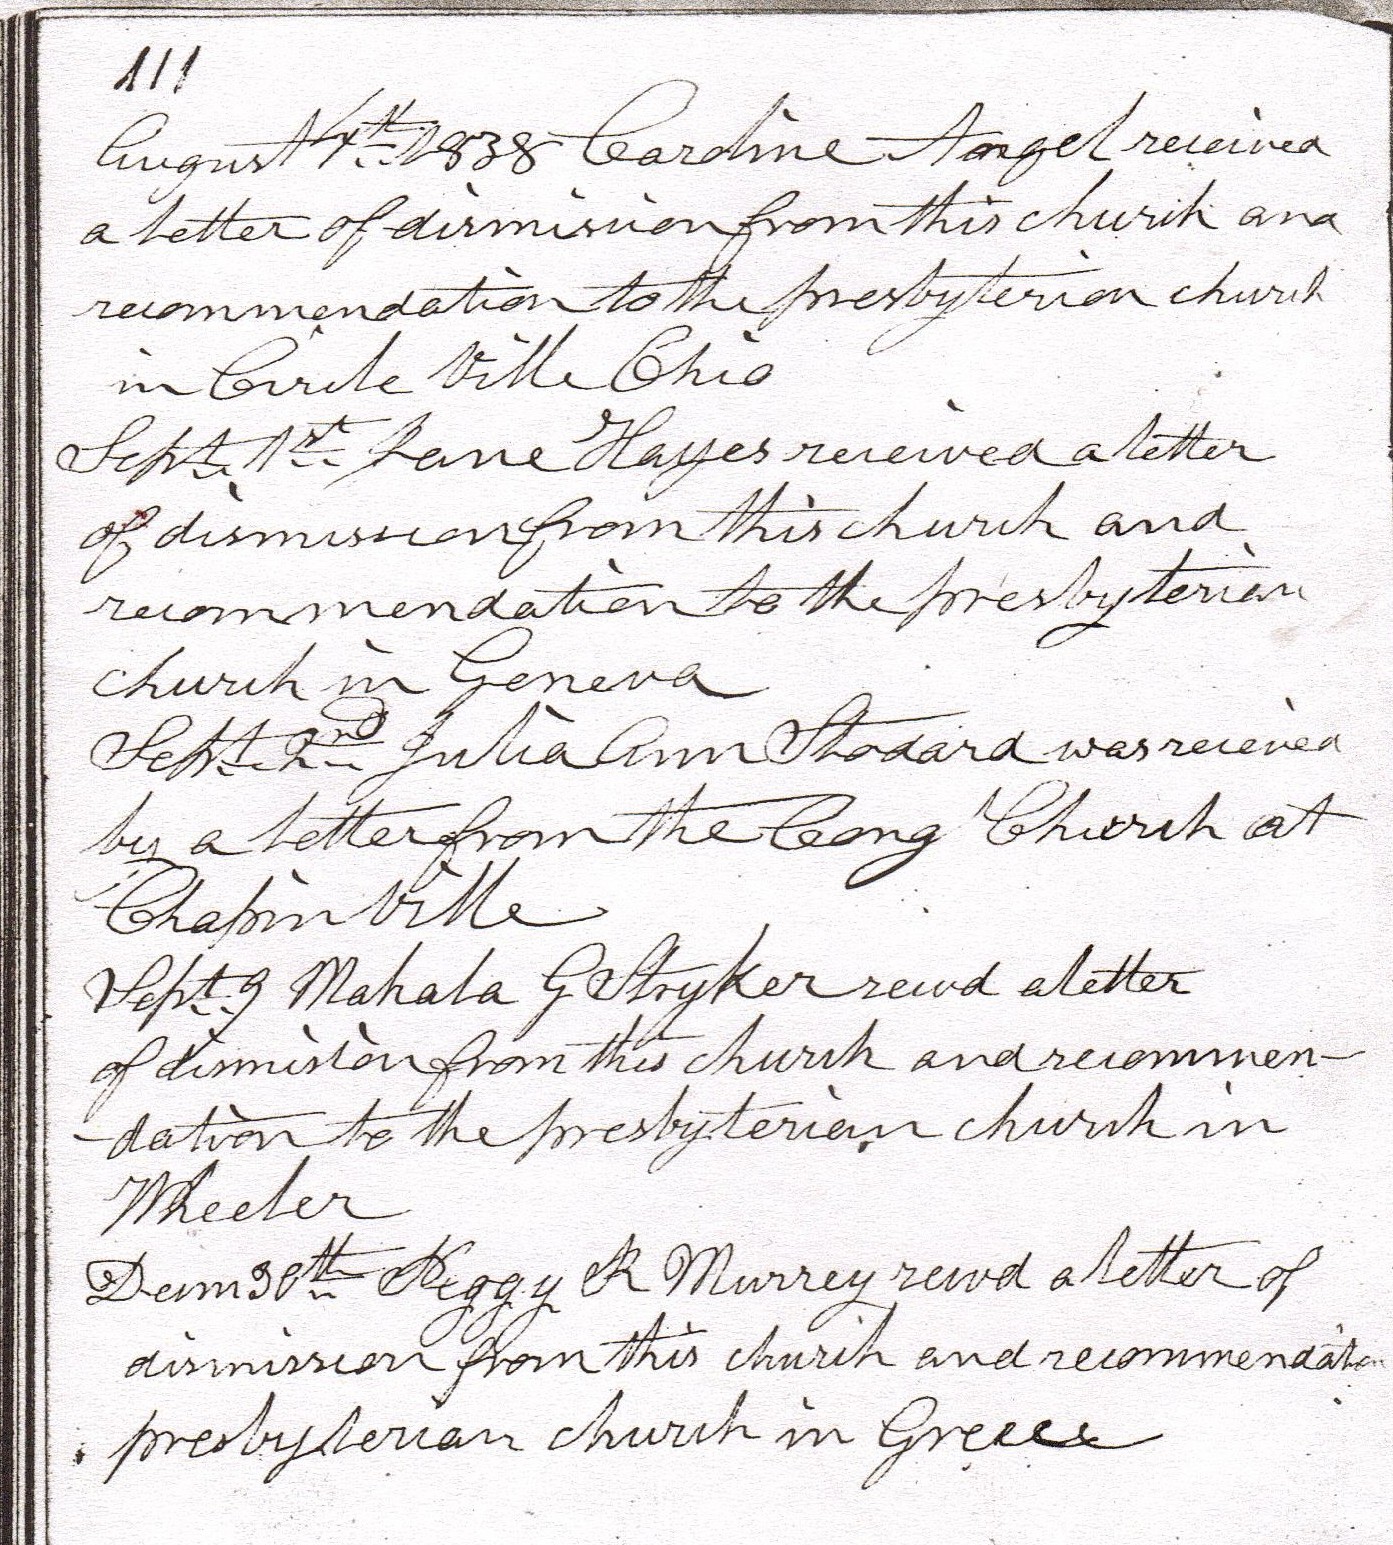 111
August 4th 1838 Caroline Angel received
a letter of dismission from this church and
recommendation to the presbyterian church
in Circle Ville Ohio
Sept. 1st Jane Hayes received a letter
of dismission from this church and
recommendation to the presbyterian
church in Geneva
Sept. 2nd Julia Ann Stodard was received
by a letter from the Cong Church at
Chapin Ville
Sept. 9 Mahala G Stryker recvd a letter
of dismision from this church and recommen-
-dation to the presbyterian church in
Wheeler
Decm 30th Peggy R Murrey recvd a letter of
dismission from this church and recommendation
presbyterian church in Greece